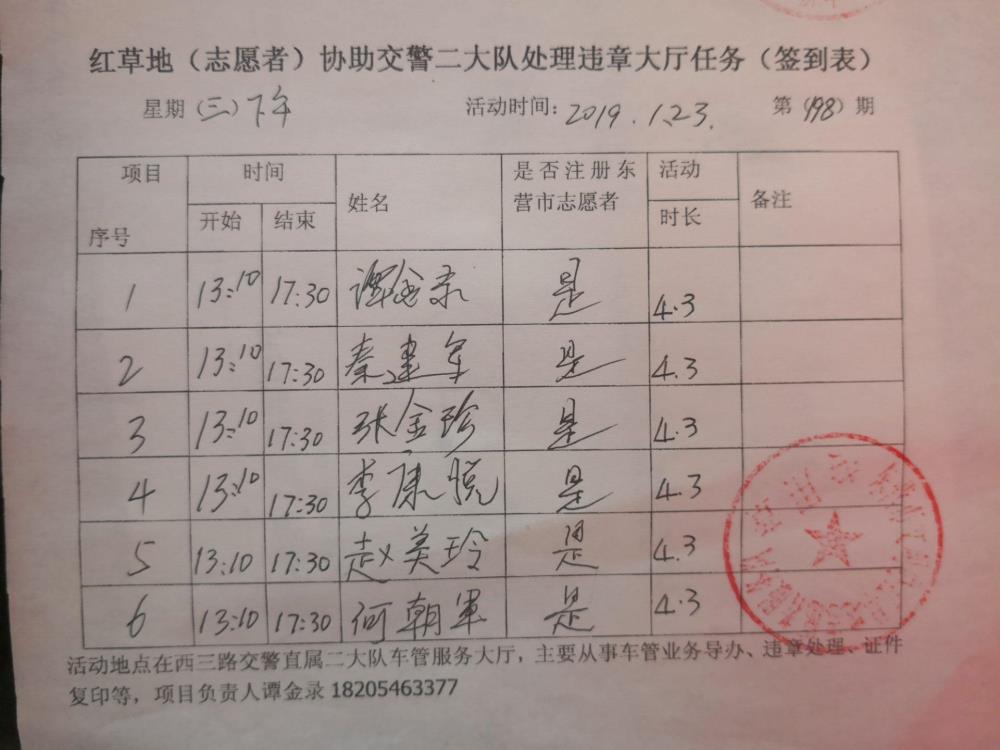 红草地（志愿者）协助交警二大队处理违章大厅任务（签到表）
星期（三）下午 活动时间：2019.1.23. 第（198）期
项目 时间 姓名 是否注册东营市志愿者 活动时长 备注
序号 开始 结束
1 13:10 17:30 谭金录 是 4.3
2 13:10 17:30 秦建军 是 4.3
3 13:10 17:30 张金珍 是 4.3
4 13:10 17:30 李康悦 是 4.3
5 13:10 17:30 赵美玲 是 4.3
6 13:10 17:30 何朝军 是 4.3
活动地点在西三路交警直属二大队车管服务大厅，主要从事车管业务导办、违章处理、证件
复印等，项目负责人谭金录 18205463377